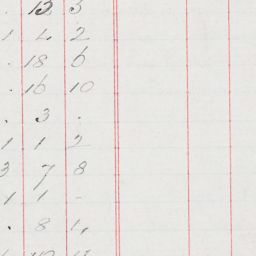 . 13 3
1 4 2
. 18 6
. 16 10
. 3 .
1 1 2
3 7 8
1 1 -
. 8 4